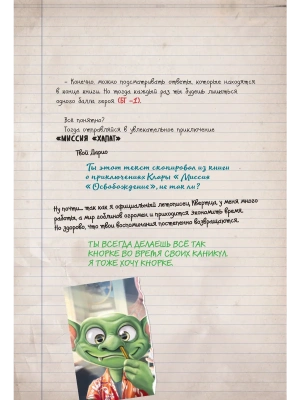 – Конечно, можно подсматривать ответы, которые находятся
в конце книги. Но тогда каждый раз ты будешь лишаться
одного балла героя (БГ –1).
Всё понятно?
Тогда отправляйся в увлекательное приключение
«МИССИЯ «ХАПАТ»
Твой Дарио
Ты этот текст скопировал из книги
о приключениях Клары « Миссия
« Освобождение», не так ли?
Ну почти, так как я официальный летописец Квартиа, у меня много
работы, а мир гоблинов огромен и приходится экономить время.
Но здорово, что твои воспоминания постепенно возвращаются.
ТЫ ВСЕГДА ДЕЛАЕШЬ ВСЁ ТАК
КНОРКЕ ВО ВРЕМЯ СВОИХ КАНИКУЛ.
Я ТОЖЕ ХОЧУ КНОРКЕ.